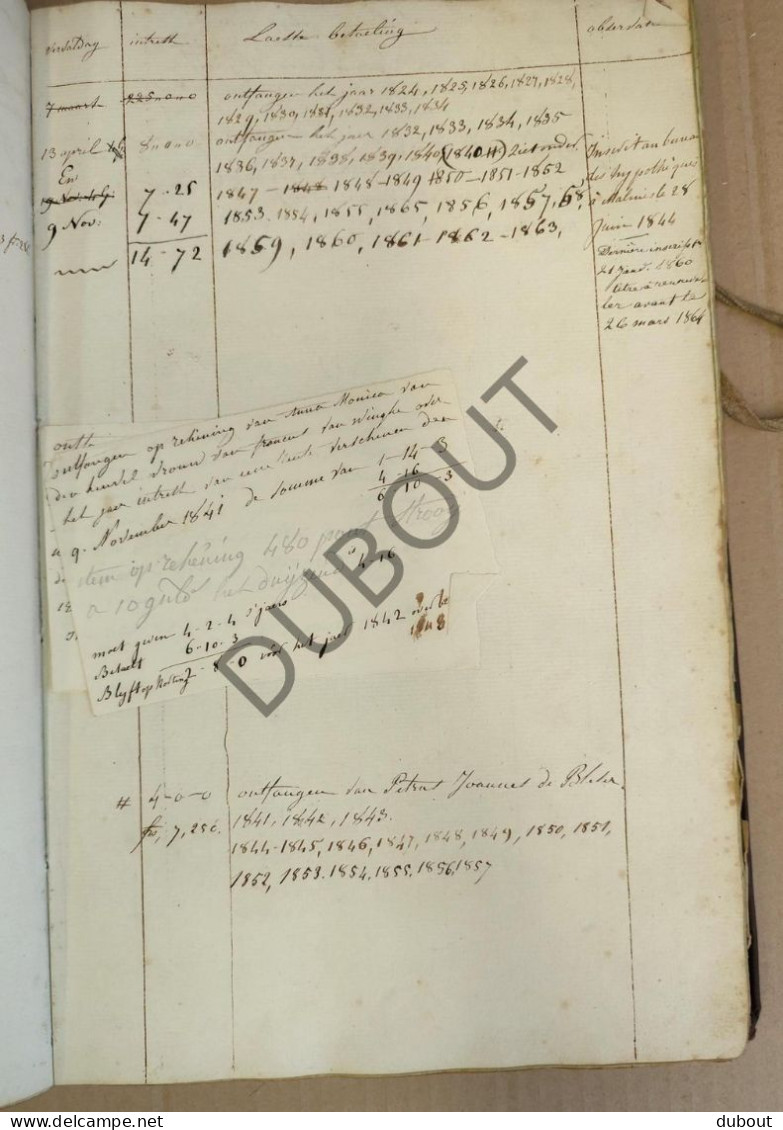 vervaldag intrest Laeste betaeling observatie
7 maart 225-0-0 ontfangen het jaar 1824, 1825, 1826, 1827, 1828,
1829, 1830, 1831, 1832, 1833, 1834
13 april 8-0-0 ontfangen het jaer 1832, 1833, 1834, 1835
1836, 1837, 1838, 1839, 1840 (1840 #) Ziet onder
En
7-25 1847 - 1848 1848 - 1849 1850 - 1851 - 1852
9 Nov: 7-47 1853. 1854, 1855, 1865, 1856, 1857, 58,
14-72 1859, 1860, 1861 - 1862 - 1863,
Inscrit au bureau
des hypothèques
à Malines le 28
Juin 1844
Dernière inscript
21 1860
titre à renouvel
ler avant le
26 mars 1864
ontfangen op rekening van Anna Monica van
den heuvel vrouw van francus van Winghe over
het jaer intrest van eene rente verschenen den
9. November 1841 de somme van 1-14-3
4-16
6-10-3
item op rekening 480 pont stroey
a 10 guld het duijzend 4-16
moet geven 4-2-4 s'jaers
Betaelt 6-10-3
Blyft op korting 7-8-0 voor het jaer 1842 over
# 4-0-0 ontfangen van Petrus Joannes de Bleser.
frs, 7,25c. 1841, 1842, 1843.
1844-1845, 1846, 1847, 1848, 1849, 1850, 1851,
1852, 1853. 1854. 1855. 1856, 1857
DUBOUT
© www.delcampe.net dubout